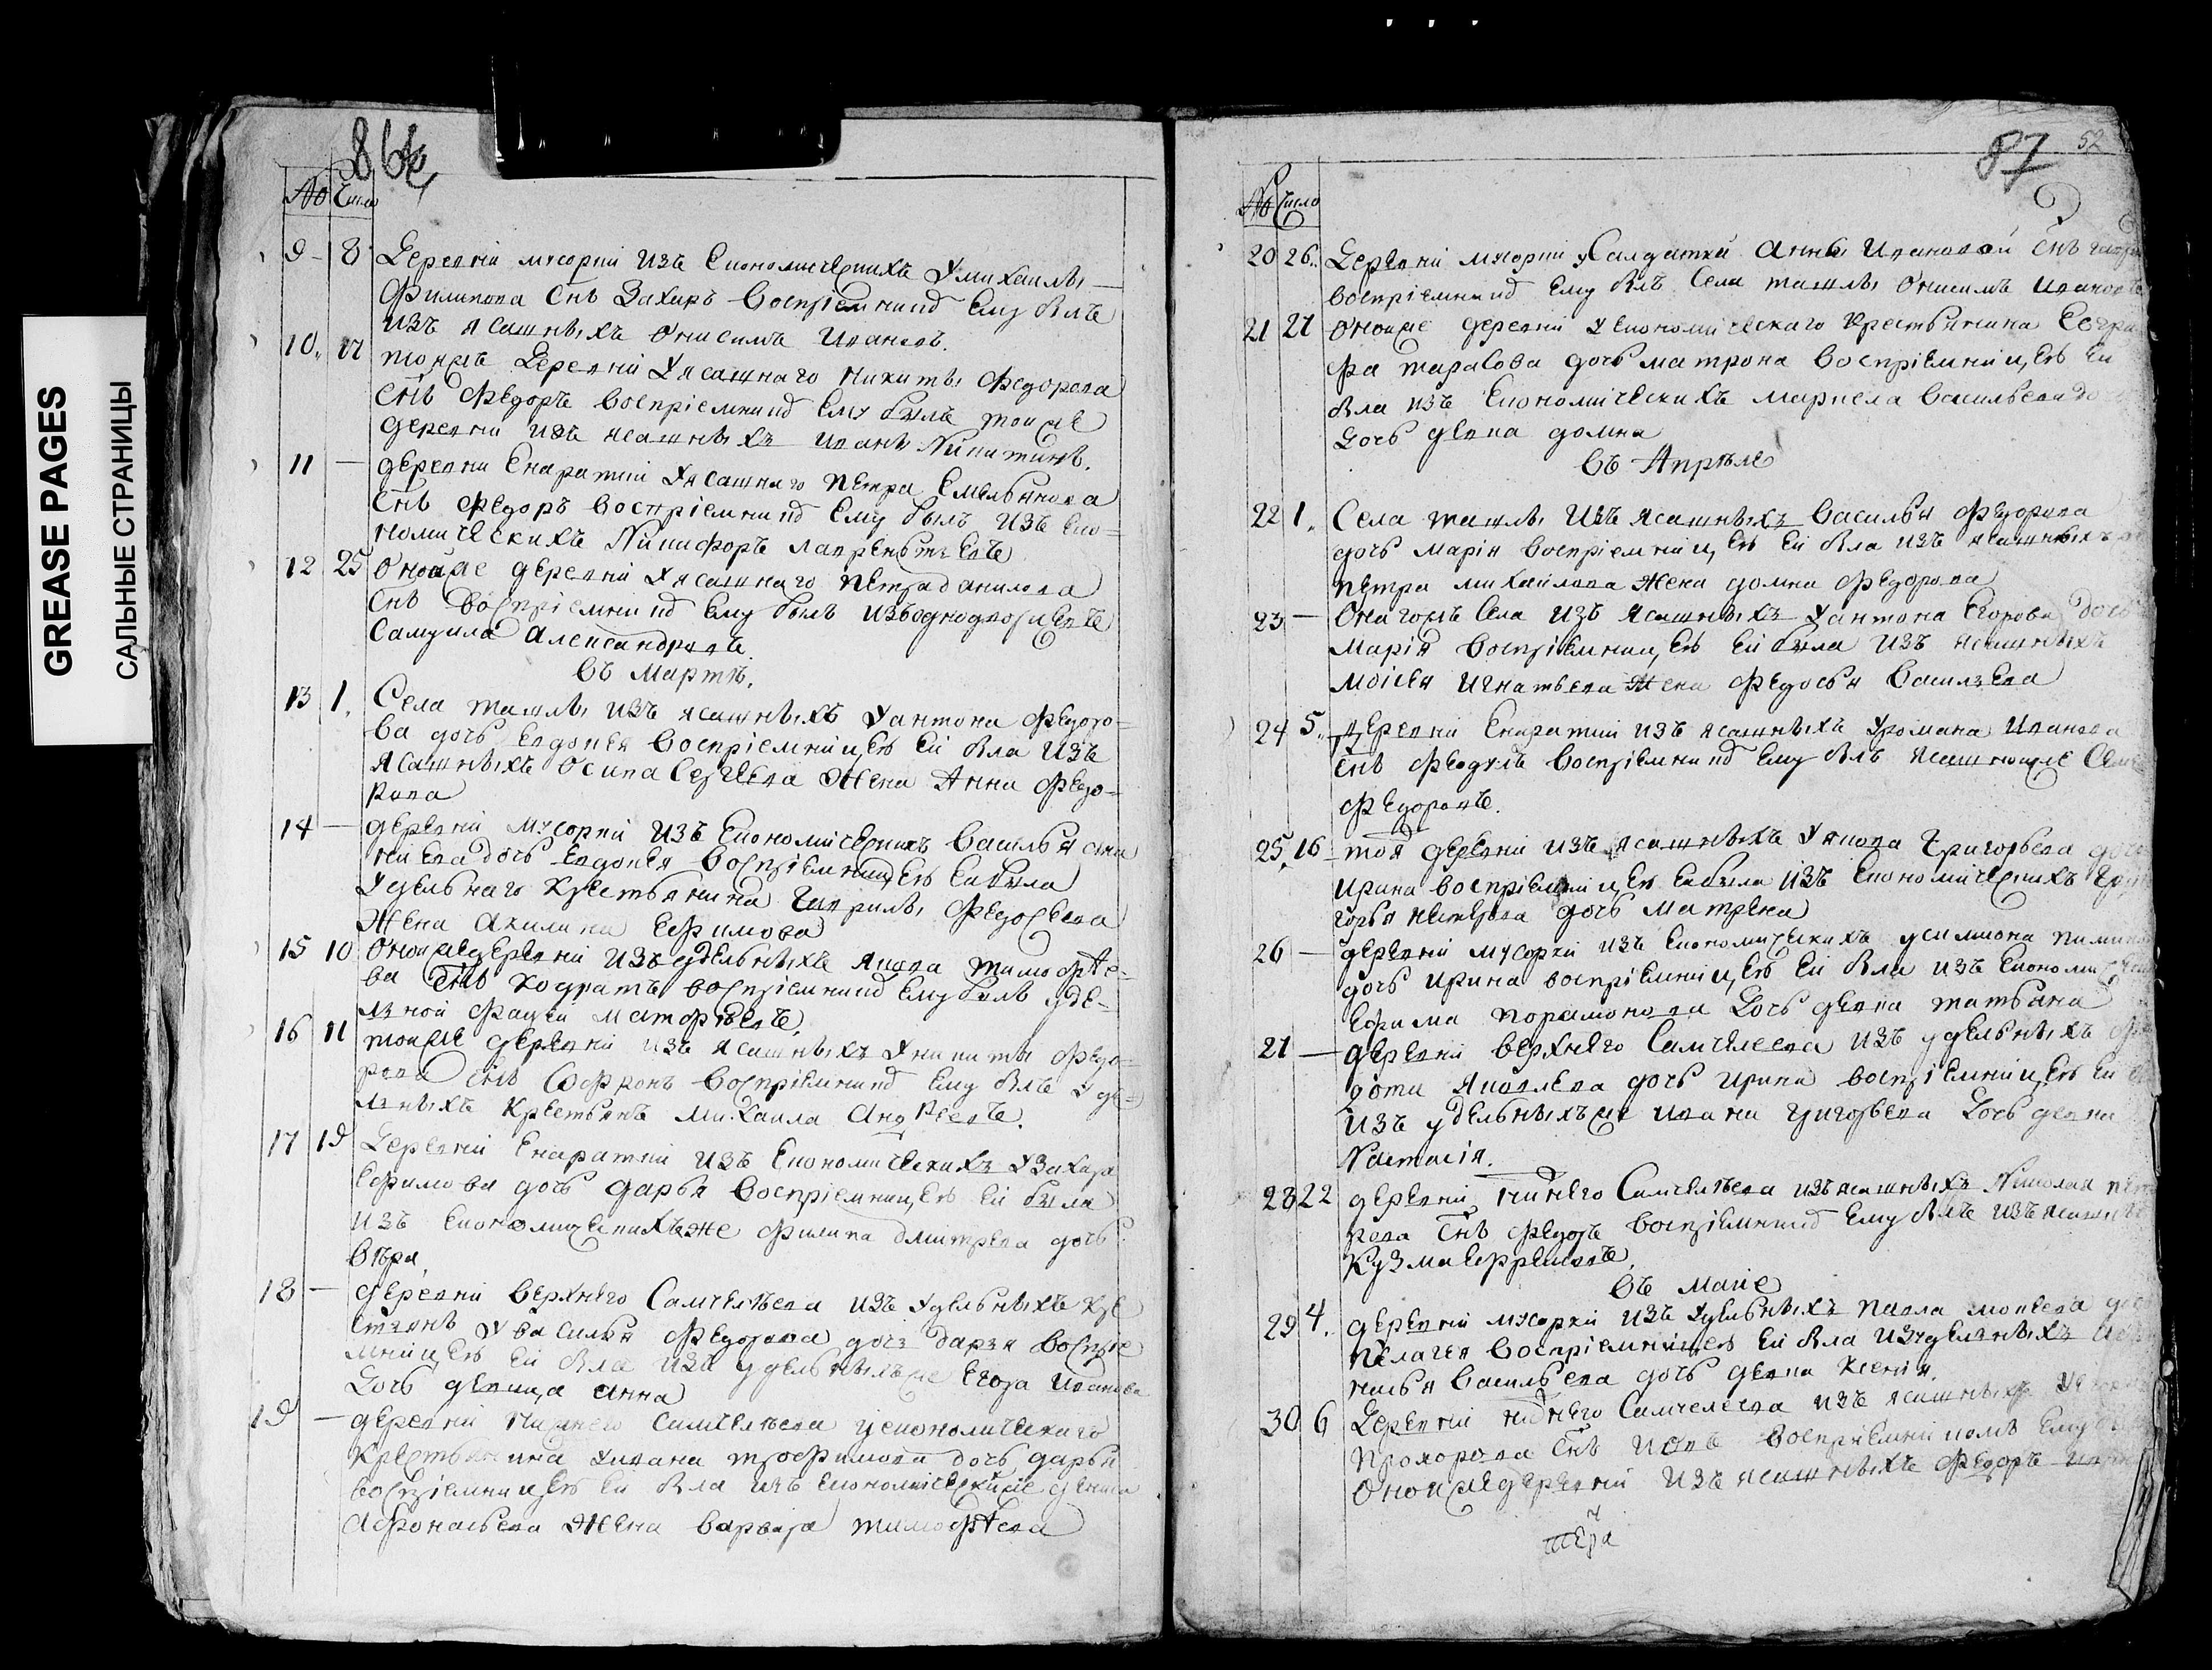 GREASE PAGES
САЛЬНЫЕ СТРАНИЦЫ
86
№ Число
9 - 8 Деревни мусорки изъ Економическихъ У михаилы
Филипова Снъ Захаръ восприемникъ Ему былъ
изъ ясашныхъ Онисимъ Ивановъ.
10. 17 тоижъ Деревни У ясашнаго никиты Федорова
Снъ Федоръ восприемникъ Ему былъ тоиже
деревни изъ ясашныхъ иванъ Никитинъ.
11 — деревни Енаратки У ясашнаго петра Емельянова
Снъ Федоръ восприемникъ Ему былъ изъ Еко=
номическихъ Никифоръ лаврентьевъ
12 25 Оноиже деревни У ясашнаго петра данилова
Снъ восприемникъ Ему былъ изъ однодворцевъ
Самуила Александровъ.
въ Мартѣ.
13 1. Села ташлы изъ ясашныхъ У антона Федоро=
ва дочь Евдокея восприемницею Ей была изъ
ясашныхъ Осипа Сергеева Жена Анна Федо=
рова
14 — деревни мусорки изъ Економическихъ василья
дочь Евдокея восприемницею Ей была
Удельнаго крестьянина Гаврилы Федосеева
Жена Акилина Ефимова
15 10 Оноиже деревни изъ удѣльныхъ якова тимофѣе=
ва Снъ Кодратъ восприемникъ Ему былъ удѣ=
льной фадей матофѣевъ.
16 11 тоиже деревни изъ ясашныхъ У никиты Федо=
рова Снъ Софронъ восприемникъ Ему былъ Удѣ=
льныхъ Крестьянъ михаила Андреевъ.
17 19 Деревни Енаратки изъ Економическихъ У Захара
Ефимова дочь дарья восприемницею Ей была
изъ Економическихъже филипа дмитрева дочь
вѣра.
18 — деревни верхнего Самчелѣева изъ Удельныхъ кре
стьянъ У василья Федорова дочь дарья воспре
мницею Ей была изъ удельныхъже Егора иванова
Дочь девица анна
19 — деревни нижнего самчелѣева у економическаго
Крестьянина У ивана трофимова дочь дарья
восприемницею Ей была изъ економическиже
Афонасьева Жена варвара тимофѣева
87 52
№ Число
20 26. Деревни мусорки у Салдатки анны ивановой Снъ
восприемникъ Ему былъ Села ташлы Онисимъ ивановъ
21 27 Оноиже деревни У економическаго крестьянина
фа тарасова дочь матрона восприемницею Ей
была изъ Економическихъ васильева
Дочь девка домна
въ Апрѣле
22 1. Села ташлы изъ ясашныхъ василья Федорова
дочь Марія восприемницею Ей была изъ ясашныхъ
петра михайлова жена домна Федорова
23 — Онагожъ Села изъ ясашныхъ У антона Егорова дочь
Марія восприемницею Ей была изъ ясашныхъ
моисея игнатьева Жена Федосья васильева
24 5. деревни Енаратки изъ ясашныхъ У романа иванова
Снъ Федулъ восприемникъ Ему былъ ясашноиже
Федоровъ.
25. 16 тоя деревни изъ ясашныхъ У якова Григорьева дочь
ирина восприемницею Ей была изъ Економическихъ Гри
горья дочь матрена
26 — деревни мусорки изъ Економическихъ у симиона
дочь ирина восприемницею Ей была изъ Економическихъ
Ефима порамонова Дочь девка татьяна
27 — деревни верхнего Самчелеева изъ удельныхъ
дота яковлева дочь ирина восприемницею Ей
изъ удельныхъже ивана григорьева Дочь девка
Настасія.
28 22 деревни нижнего Самчелѣева изъ ясашныхъ Николая
рева Снъ Федоръ восприемникъ Ему былъ изъ ясашныхъ
Кузма Ефремовъ.
въ Маие
29 4. деревни мусорки изъ Удельныхъ павла дочь
пелагея восприемницею Ей была изъ удельныхъ
насья васильева дочь девка Ксения.
30 6 Деревни нижнего Самчелеева изъ ясашныхъ
прохорова Снъ восприемникомъ Ему былъ
Оноиже деревни изъ ясашныхъ Федоръ